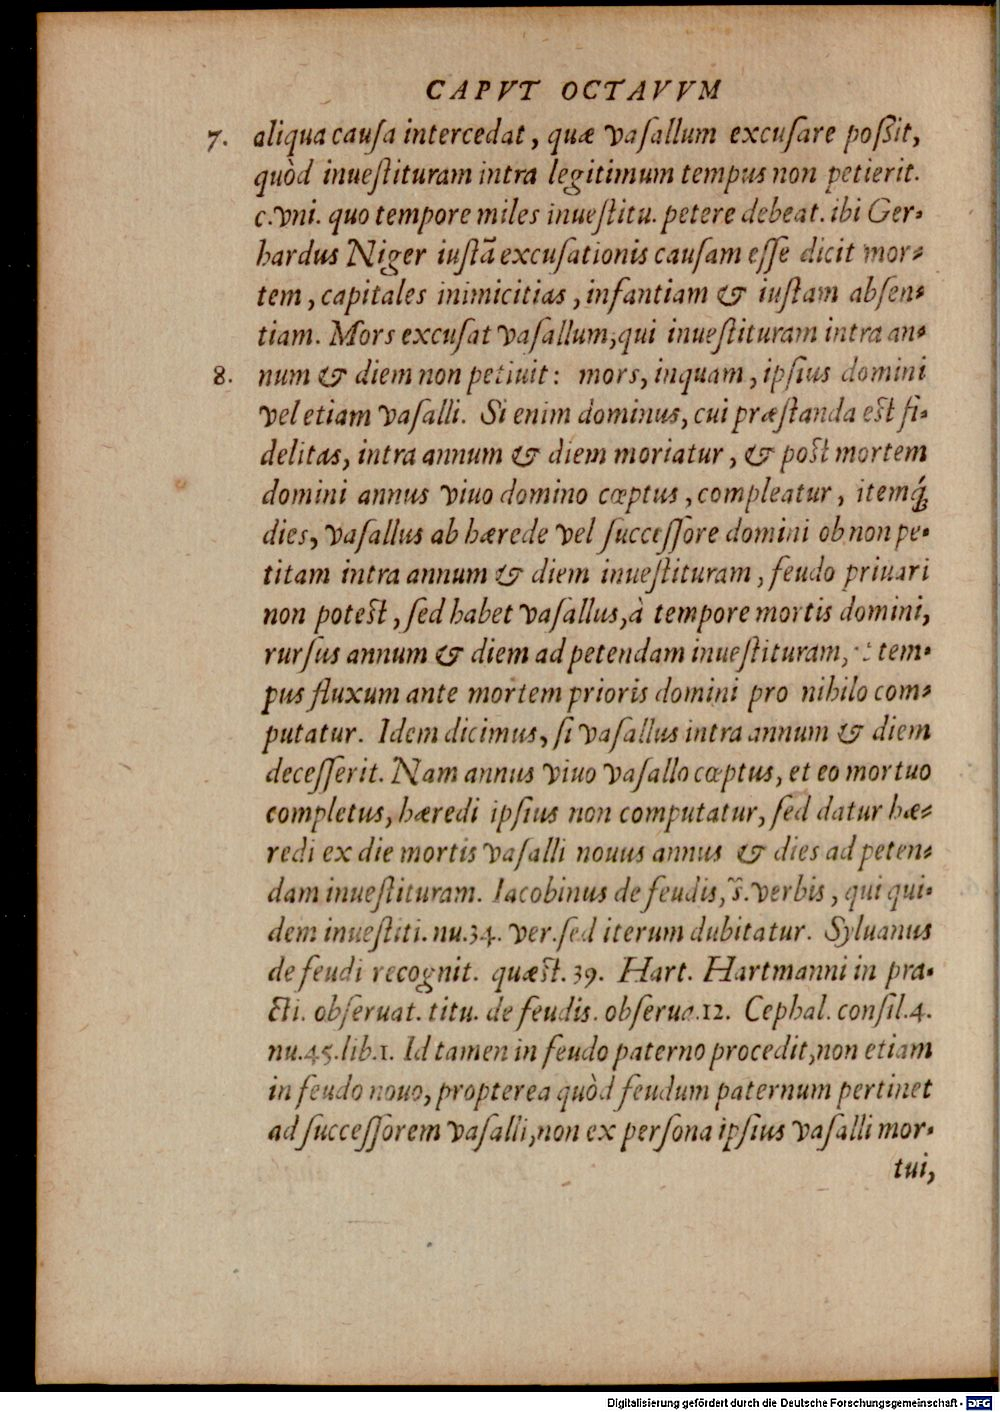 CAPVT OCTAVVM
7. aliqua causa intercedat, quæ vasallum excusare poßit,
quòd inuestituram intra legitimum tempus non petierit.
c.vni. quo tempore miles inuestitu. petere debeat. ibi Ger-
hardus Niger iustā excusationis causam esse dicit mor-
tem, capitales inimicitias, infantiam & iustam absen-
tiam. Mors excusat vasallum, qui inuestituram intra an-
8. num & diem non petiuit: mors, inquam, ipsius domini
vel etiam vasalli. Si enim dominus, cui præstanda est fi-
delitas, intra annum & diem moriatur, & post mortem
domini annus viuo domino cœptus, compleatur, itemq́;
dies, vasallus ab hærede vel successore domini ob non pe-
titam intra annum & diem inuestituram, feudo priuari
non potest, sed habet vasallus, à tempore mortis domini,
rursus annum & diem ad petendam inuestituram, tem-
pus fluxum ante mortem prioris domini pro nihilo com-
putatur. Idem dicimus, si vasallus intra annum & diem
decesserit. Nam annus viuo vasallo cœptus, et eo mortuo
completus, hæredi ipsius non computatur, sed datur hæ-
redi ex die mortis vasalli nouus annus & dies ad peten-
dam inuestituram. Iacobinus de feudis, s̃. verbis, qui qui-
dem inuestiti. nu.34. ver. sed iterum dubitatur. Syluanus
de feudi recognit. quæst. 39. Hart. Hartmanni in pra-
cti. obseruat. titu. de feudis. obserua.12. Cephal. consil.4.
nu.45.lib.1. Id tamen in feudo paterno procedit, non etiam
in feudo nouo, propterea quòd feudum paternum pertinet
ad successorem vasalli, non ex persona ipsius vasalli mor-
tui,
Digitalisierung gefördert durch die Deutsche Forschungsgemeinschaft - DFG